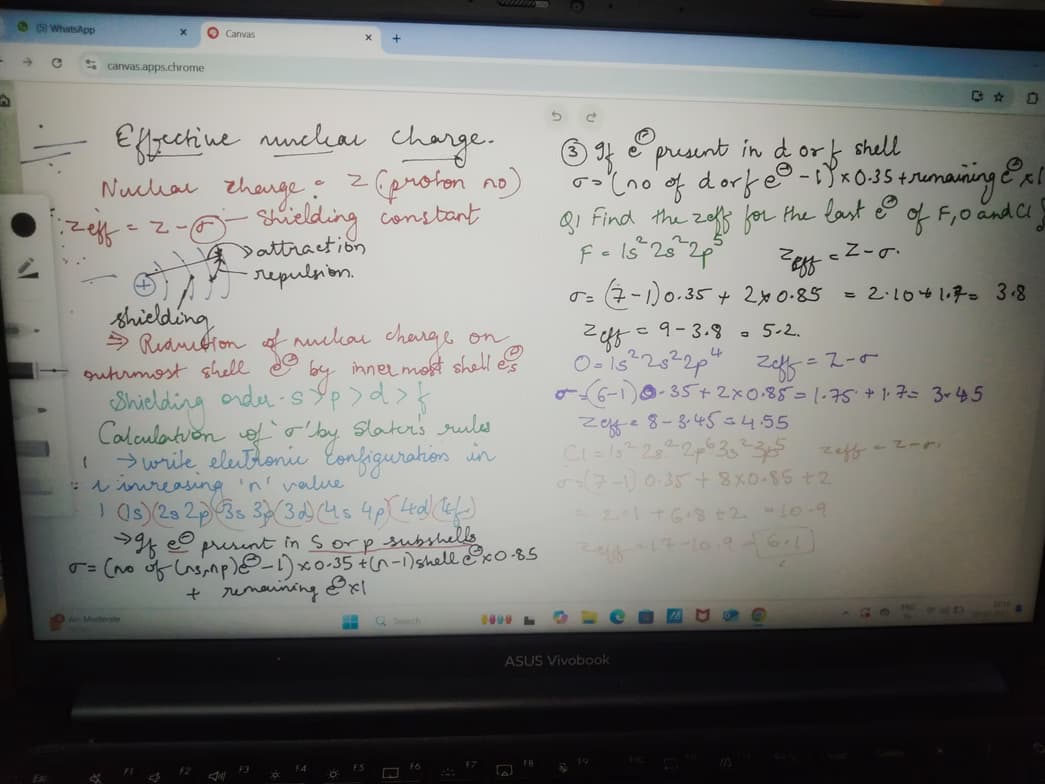 (5) WhatsApp
Canvas
canvas.apps.chrome
Effective nuclear charge.
Nuclear charge = Z (proton no)
Zeff = Z - σ - Shielding constant
attraction
repulsion.
+
shielding
⇒ Reduction of nuclear charge on
outermost shell e⊖ by inner most shell e⊖s
Shielding order - s > p > d > f
Calculation of 'σ' by Slater's rules
→ write electronic configuration in
increasing 'n' value
(1s) (2s 2p) (3s 3p) (3d) (4s 4p) (4d) (4f)
→ If e⊖ present in S or p subshells
σ = (no of (ns, np) e⊖ - 1) × 0.35 + (n-1) shell e⊖ × 0.85
+ remaining e⊖ × 1
③ If e⊖ present in d or f shell
σ = (no of d or f e⊖ - 1) × 0.35 + remaining e⊖ × 1
Q1 Find the Zeff for the last e⊖ of F, O and Cl
F = 1s² 2s² 2p⁵ Zeff = Z - σ.
σ = (7-1) 0.35 + 2 × 0.85 = 2.10 + 1.7 = 3.8
Zeff = 9 - 3.8 = 5.2.
O = 1s² 2s² 2p⁴ Zeff = Z - σ
σ = (6-1) 0.35 + 2 × 0.85 = 1.75 + 1.7 = 3.45
Zeff = 8 - 3.45 = 4.55
Cl = 1s² 2s² 2p⁶ 3s² 3p⁵ Zeff = Z - σ.
σ = (7-1) 0.35 + 8 × 0.85 + 2
= 2.1 + 6.8 + 2 = 10.9
Zeff = 17 - 10.9 = 6.1
Search
ASUS Vivobook
Esc F1 F2 F3 F4 F5 F6 F7 F8 F9